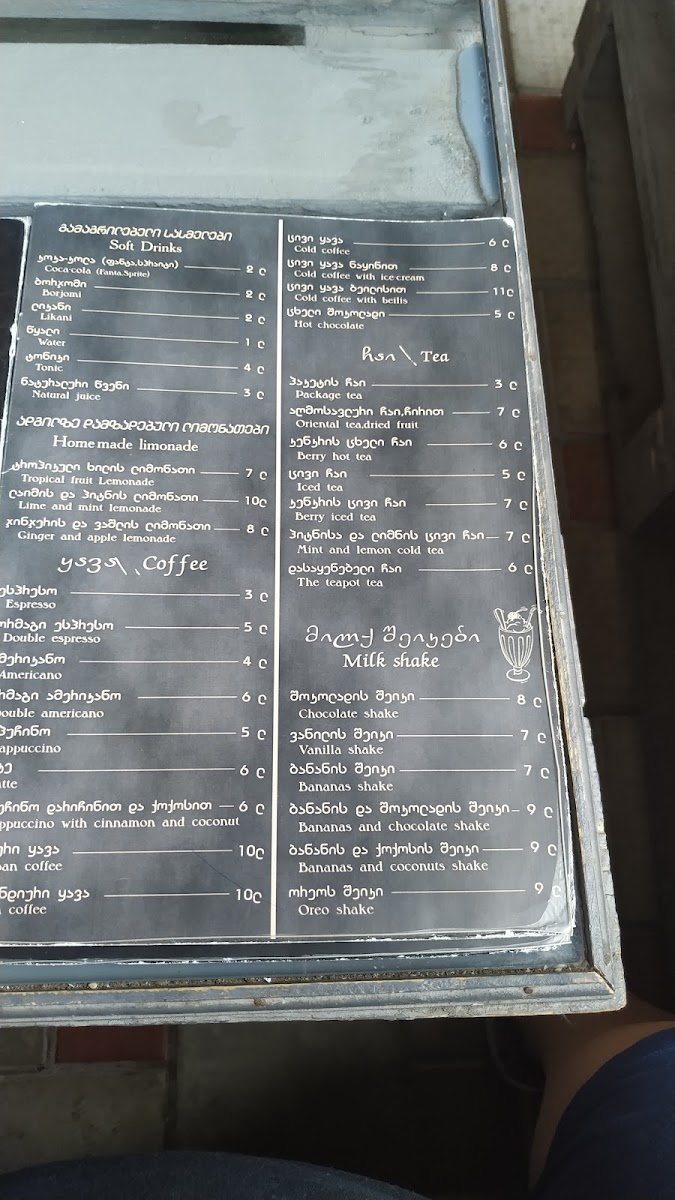 გამაგრილებელი სასმელები
Soft Drinks
კოკა-კოლა (ფანტა,სპრაიტი) 2 ლ
Coca-cola (Fanta.Sprite)
ბორჯომი 2 ლ
Borjomi
ლიკანი 2 ლ
Likani
წყალი 1 ლ
Water
ტონიკი 4 ლ
Tonic
ნატურალური წვენი 3 ლ
Natural juice
ადგილზე დამზადებული ლიმონათები
Home made limonade
ტროპიკული ხილის ლიმონათი 7 ლ
Tropical fruit Lemonade
ლაიმის და პიტნის ლიმონათი 10ლ
Lime and mint lemonade
ჯინჯერის და ვაშლის ლიმონათი 8 ლ
Ginger and apple lemonade
ყავა \ Coffee
ესპრესო 3 ლ
Espresso
ორმაგი ესპრესო 5 ლ
Double espresso
მერიკანო 4 ლ
Americano
რმაგი ამერიკანო 6 ლ
ouble americano
პუჩინო 5 ლ
appuccino
ტე 6 ლ
tte
უჩინო დარიჩინით და ქოქოსით 6 ლ
ppuccino with cinnamon and coconut
ური ყავა 10ლ
an coffee
ნდიური ყავა 10ლ
coffee
ცივი ყავა 6 ლ
Cold coffee
ცივი ყავა ნაყინით 8 ლ
Cold coffee with ice-cream
ცივი ყავა ბეილისით 11ლ
Cold coffee with beilis
ცხელი შოკოლადი 5 ლ
Hot chocolate
ჩაი \ Tea
პაკეტის ჩაი 3 ლ
Package tea
აღმოსავლური ჩაი,ჩირით 7 ლ
Oriental tea.dried fruit
კენკრის ცხელი ჩაი 6 ლ
Berry hot tea
ცივი ჩაი 5 ლ
Iced tea
კენკრის ცივი ჩაი 7 ლ
Berry iced tea
პიტნისა და ლიმნის ცივი ჩაი 7 ლ
Mint and lemon cold tea
დასაყენებელი ჩაი 6 ლ
The teapot tea
მილქ შეიკები
Milk shake
შოკოლადის შეიკი 8 ლ
Chocolate shake
ვანილის შეიკი 7 ლ
Vanilla shake
ბანანის შეიკი 7 ლ
Bananas shake
ბანანის და შოკოლადის შეიკი 9 ლ
Bananas and chocolate shake
ბანანის და ქოქოსის შეიკი 9 ლ
Bananas and coconuts shake
ორეოს შეიკი 9 ლ
Oreo shake